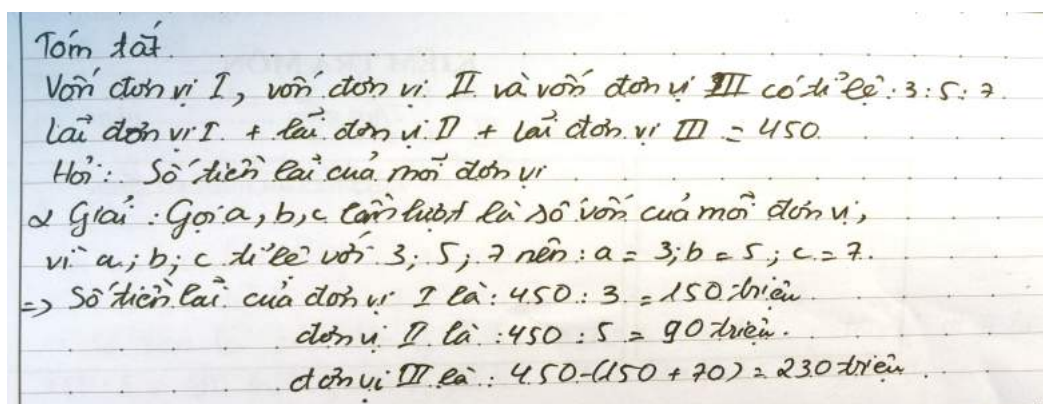 Tóm tắt
Vốn đơn vị I, vốn đơn vị II và vốn đơn vị III có tỉ lệ: 3:5:7.
Lãi đơn vị I + lãi đơn vị II + lãi đơn vị III = 450
Hỏi: Số tiền lãi của mỗi đơn vị
Giải: Gọi a, b, c lần lượt là số vốn của mỗi đơn vị,
vì a; b; c tỉ lệ với 3; 5; 7 nên: a = 3; b = 5; c = 7.
=> Số tiền lãi của đơn vị I là: 450 : 3 = 150 triệu
đơn vị II là: 450 : 5 = 90 triệu.
đơn vị III là: 450-(150 + 70) = 230 triệu